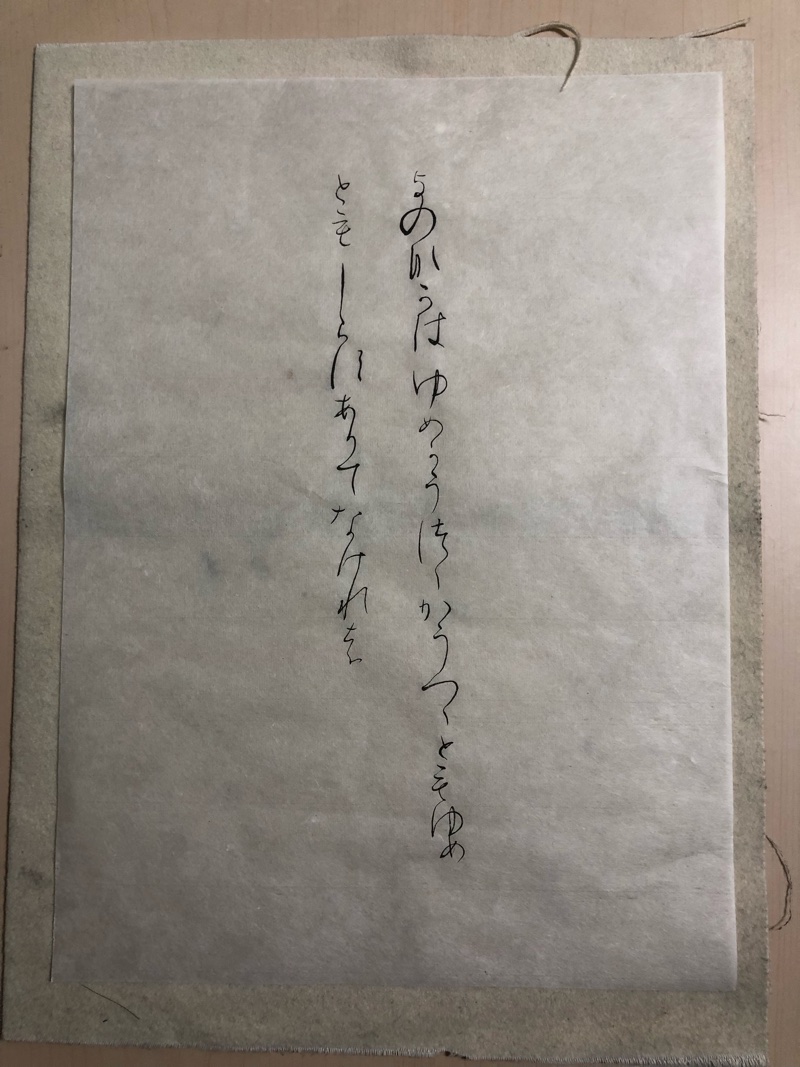 よのなかはゆめかうつゝかうつゝともゆめ
ともしらすありてなけれは